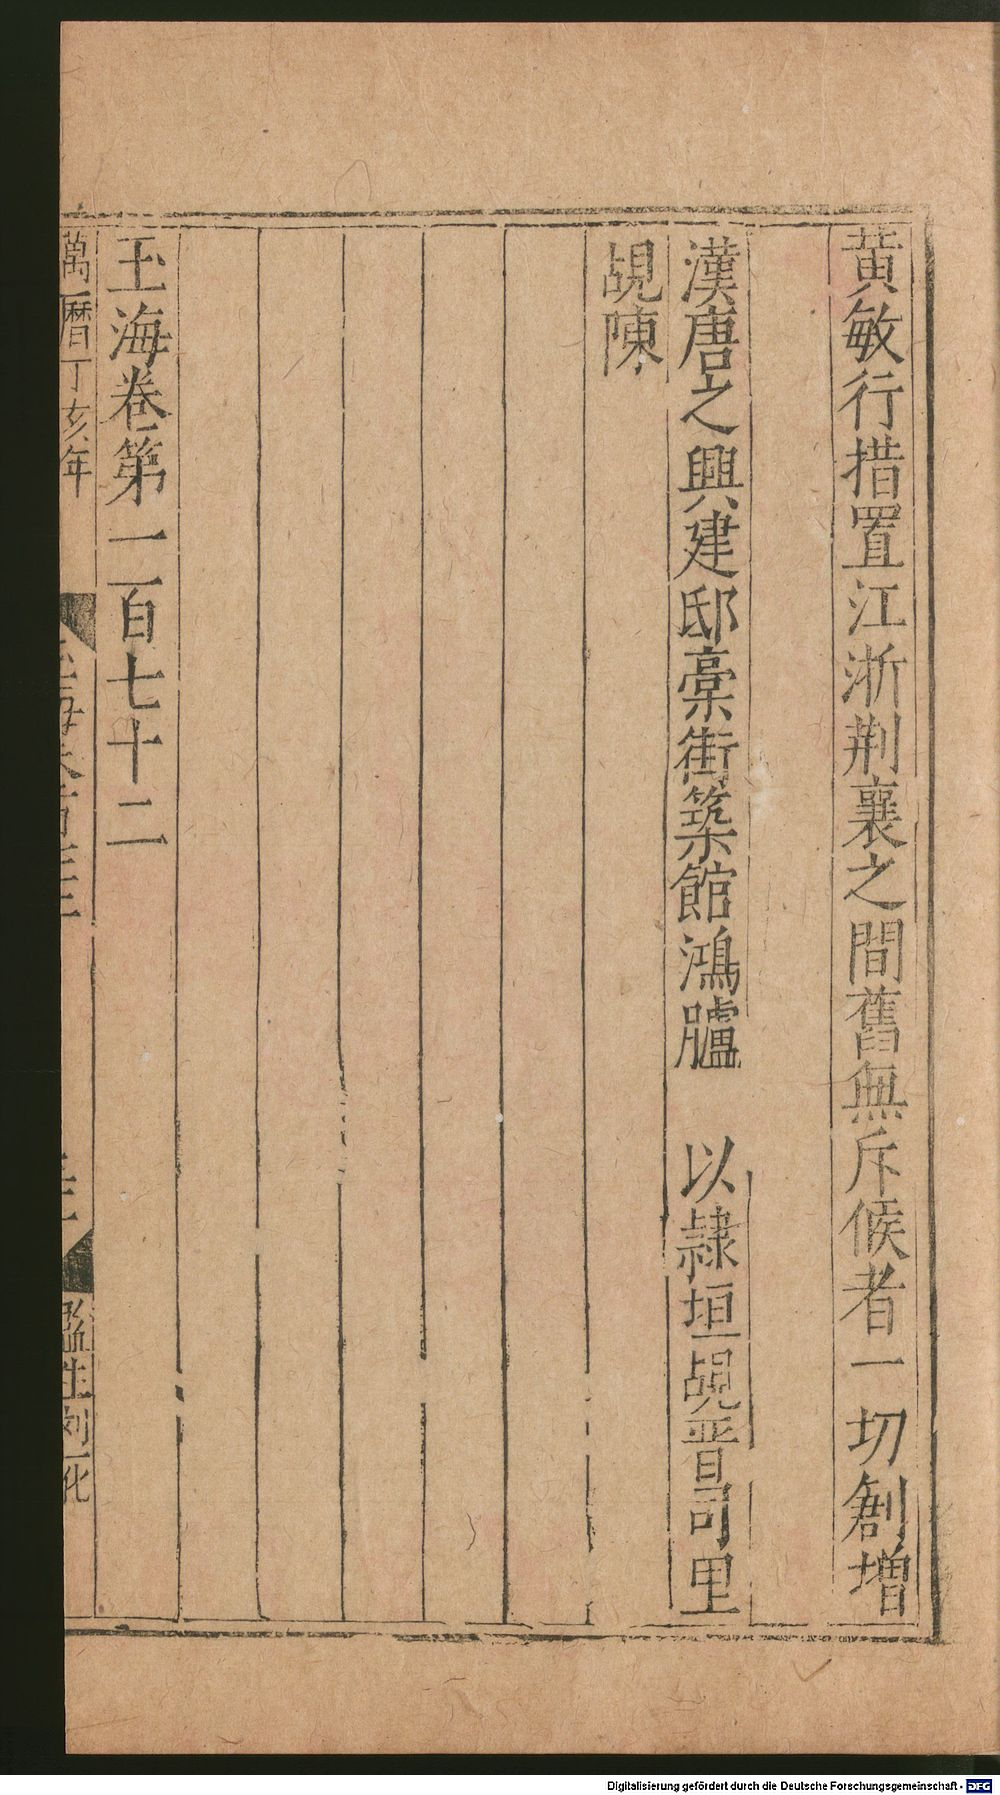 黃敏行措置江浙荆襄之間舊無斥候者一切創增
漢唐之興建邸槀街築館鴻臚　以隷垣覘晋司里
覘陳
玉海卷第一百七十二
萬曆丁亥年
監生刘一化
Digitalisierung gefördert durch die Deutsche Forschungsgemeinschaft - DFG